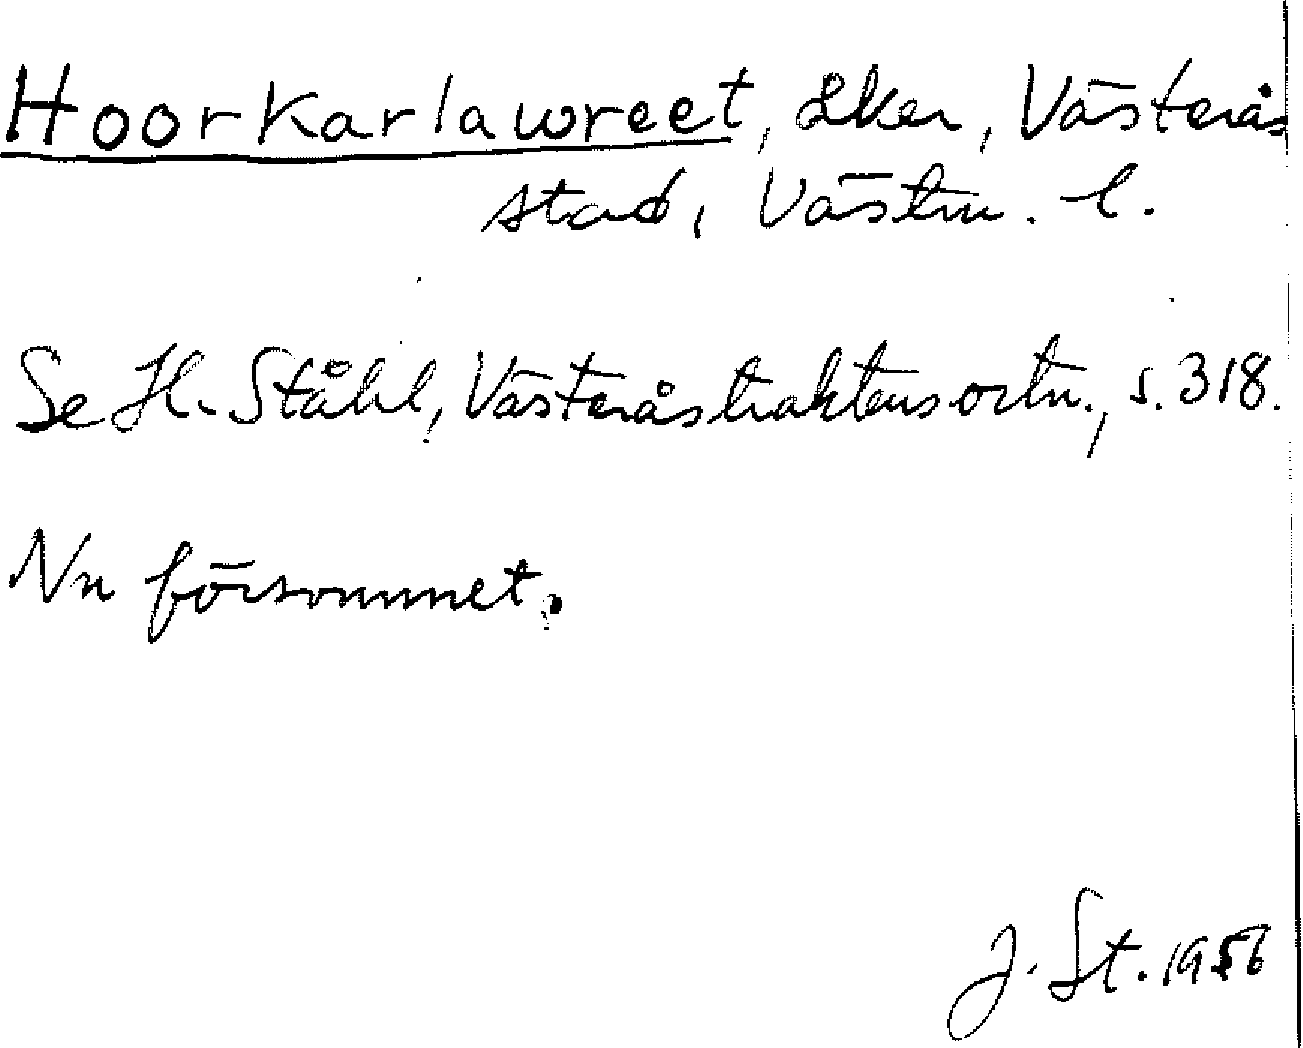 Hoorkarlawreet, åker, Västerås
stad, Västm. l.
Se H. Ståhl, Västeråstraktens ortn., s. 318.
Nu försvunnet.
J. St. 1956